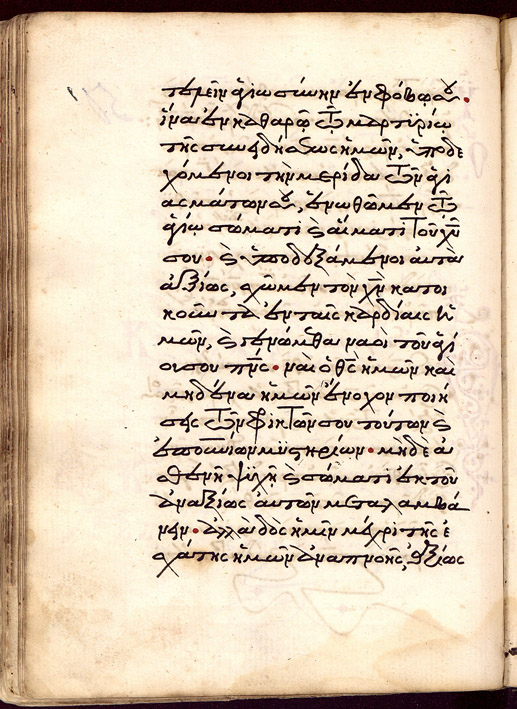 τελεῖν ἁγιωσύνην ἐν φόβῳ σου.
ἵνα ἐν καθαρῷ τῷ μαρτυρίῳ
τῆς συνειδήσεως ἡμῶν, ὑποδε
χόμενοι τὴν μερίδα τῶν ἁγι
ασμάτων σου, ἑνωθῶμεν τῷ
ἁγίῳ σώματι ϗ αἵματι τοῦ χυ
σου· ϗ ὑποδεξάμενοι αὐτὰ
ἀξίως, σχῶμεν τὸν χν κατοι
κοῦντα ἐν ταῖς καρδίαις ἡ
μῶν, ϗ γενώμεθα ναὸς τοῦ ἁγί
ου σου πνς· ναὶ ὁ θς ἡμῶν καὶ
μηδένα ἡμῶν ἔνοχον ποιή
σῃς τῶν φρικτῶν σου τούτων ϗ
ἐπουνίων μυστηρίων· μηδὲ ἀ
σθενῆ ψυχῇ ϗ σώματι ἐκ τοῦ
ἀναξίως αὐτῶν μεταλαμβά
νειν· ἀλλὰ δὸς ἡμῖν μέχρι τῆς ἐ
σχάτης ἡμῶν ἀναπνοῆς, ἀξίως